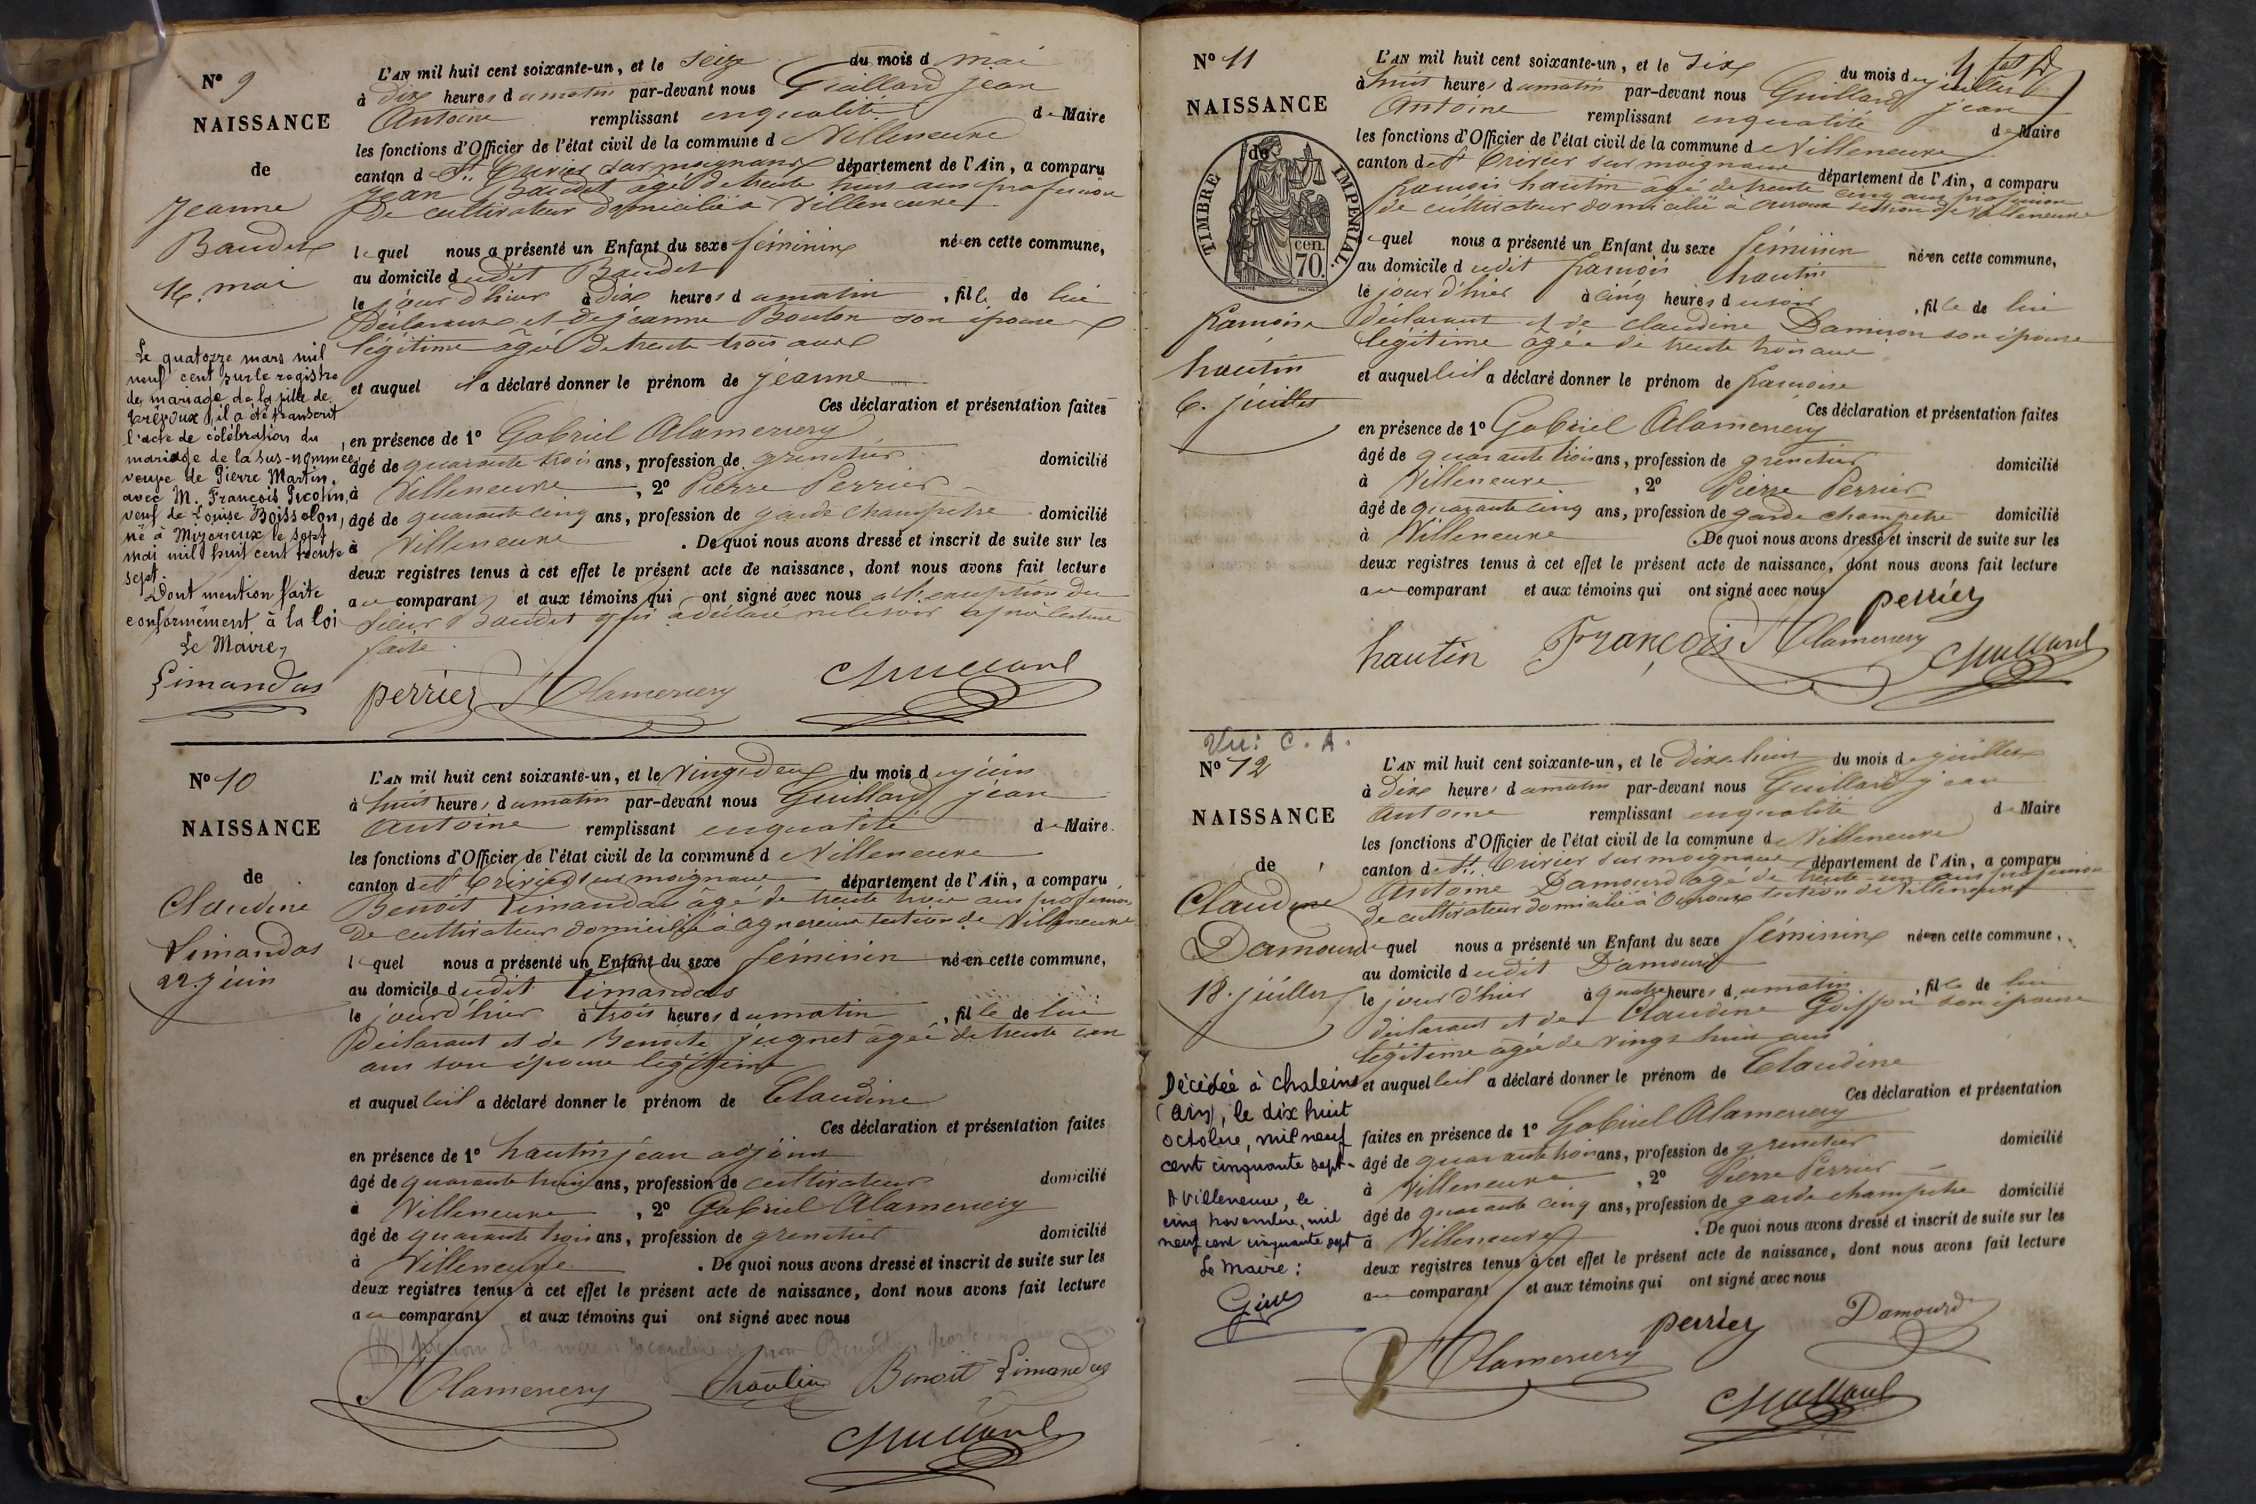 N° 9
NAISSANCE
de
Jeanne
Baudet
16. mai
L'AN mil huit cent soixante-un, et le seize du mois d mai
à dix heures du matin par-devant nous Guillard jean
Antoine remplissant en qualité de Maire
les fonctions d'Officier de l'état civil de la commune de Villeneuve
canton de St. Trivier sur moignans département de l'Ain, a comparu
Jean Baudet âgé de trente huit ans profession
de cultivateur domicilié à Villeneuve
lequel nous a présenté un Enfant du sexe féminin né en cette commune,
au domicile dudit Baudet
le jour d'hier à dix heures du matin, fille de lui
Déclarant et de jeanne Bouton son épouse
légitime âgée de trente trois ans
et auquel il a déclaré donner le prénom de jeanne
Ces déclaration et présentation faites
en présence de 1° Gabriel Alamercery
âgé de quarante trois ans, profession de grenetier domicilié
à Villeneuve, 2° Pierre Perrier
âgé de quarante cinq ans, profession de garde champetre domicilié
à Villeneuve. De quoi nous avons dressé et inscrit de suite sur les
deux registres tenus à cet effet le présent acte de naissance, dont nous avons fait lecture
au comparant et aux témoins qui ont signé avec nous a l'exception du
sieur Baudet qui a déclaré ne savoir après lecture
faite.
perrier Alamercery Guillard
Le quatorze mars mil
neuf cent sur le registre
des mariage de la ville de
Trévoux, il a été transcrit
l'acte de célébration du
mariage de la sus-nommée,
veuve de Pierre Martin,
avec M. François Picolin,
veuf de Louise Boisselon,
né à Mizerieux le sept
mai mil huit cent trente
sept.
Dont mention faite
conformément à la loi
Le Maire,
Limandas
N° 10
NAISSANCE
de
Claudine
Limandas
22. juin
L'AN mil huit cent soixante-un, et le vingt deux du mois de juin
à huit heures du matin par-devant nous Guillard jean
Antoine remplissant en qualité de Maire.
les fonctions d'Officier de l'état civil de la commune de Villeneuve
canton de St Trivier sur moignans département de l'Ain, a comparu
Benoit Limandas âgé de trente trois ans profession
de cultivateur domicilié à agnereins section de Villeneuve
lequel nous a présenté un Enfant du sexe féminin né en cette commune,
au domicile dudit Limandas
le jour d'hier à trois heures du matin, fille de lui
Déclarant et de Benoite juenet âgée de trente
ans son épouse légitime
et auquel lui a déclaré donner le prénom de Claudine
Ces déclaration et présentation faites
en présence de 1° hautin jean adjoint
âgé de quarante huit ans, profession de cultivateur domicilié
à Villeneuve, 2° Gabriel Alamercery
âgé de quarante trois ans, profession de grenetier domicilié
à Villeneuve. De quoi nous avons dressé et inscrit de suite sur les
deux registres tenus à cet effet le présent acte de naissance, dont nous avons fait lecture
au comparant et aux témoins qui ont signé avec nous
prénom de la mère Jacqueline et non Benoite
Alamercery hautin Benoit Limandas
Guillard
N° 11
NAISSANCE
de
TIMBRE IMPERIAL.
70 cen.
françoise
hautin
6. juillet
L'AN mil huit cent soixante-un, et le six du mois de juillet
à huit heures du matin par-devant nous Guillard jean
Antoine remplissant en qualité de Maire
les fonctions d'Officier de l'état civil de la commune de Villeneuve
canton de St Trivier sur moignans département de l'Ain, a comparu
françois hautin âgé de trente cinq ans profession
de cultivateur domicilié à ouroux section de Villeneuve
lequel nous a présenté un Enfant du sexe féminin né en cette commune,
au domicile dudit françois hautin
le jour d'hier à cinq heures du soir, fille de lui
déclarant et de claudine Damiron son épouse
légitime âgée de trente trois ans
et auquel lui a déclaré donner le prénom de françoise
Ces déclaration et présentation faites
en présence de 1° Gabriel Alamercery
âgé de quarante trois ans, profession de grenetier domicilié
à Villeneuve, 2° Pierre Perrier
âgé de quarante cinq ans, profession de garde champetre domicilié
à Villeneuve. De quoi nous avons dressé et inscrit de suite sur les
deux registres tenus à cet effet le présent acte de naissance, dont nous avons fait lecture
au comparant et aux témoins qui ont signé avec nous
perrier
hautin François Alamercery Guillard
Vu: C. A.
N° 12
NAISSANCE
de
Claudine
Damourd
18. juillet
L'AN mil huit cent soixante-un, et le dix huit du mois de juillet
à dix heures du matin par-devant nous Guillard jean
Antoine remplissant en qualité de Maire
les fonctions d'Officier de l'état civil de la commune de Villeneuve
canton de St. Trivier sur moignans département de l'Ain, a comparu
Antoine Damourd âgé de trente-un ans profession
de cultivateur domicilié à Ouroux section de Villeneuve
lequel nous a présenté un Enfant du sexe féminin né en cette commune,
au domicile dudit Damourd
le jour d'hier à quatre heures du matin, fille de lui
déclarant et de Claudine Goiffon son épouse
légitime âgée de vingt huit ans
et auquel lui a déclaré donner le prénom de Claudine
Ces déclaration et présentation
faites en présence de 1° Gabriel Alamercery
âgé de quarante trois ans, profession de grenetier domicilié
à Villeneuve, 2° Pierre Perrier
âgé de quarante cinq ans, profession de garde champetre domicilié
à Villeneuve. De quoi nous avons dressé et inscrit de suite sur les
deux registres tenus à cet effet le présent acte de naissance, dont nous avons fait lecture
au comparant et aux témoins qui ont signé avec nous
perrier Damourd
Alamercery
Guillard
Décédée à Chaleins
(Ain), le dix huit
octobre, mil neuf
cent cinquante sept-
A Villeneuve, le
cinq novembre, mil
neuf cent cinquante sept
Le Maire :